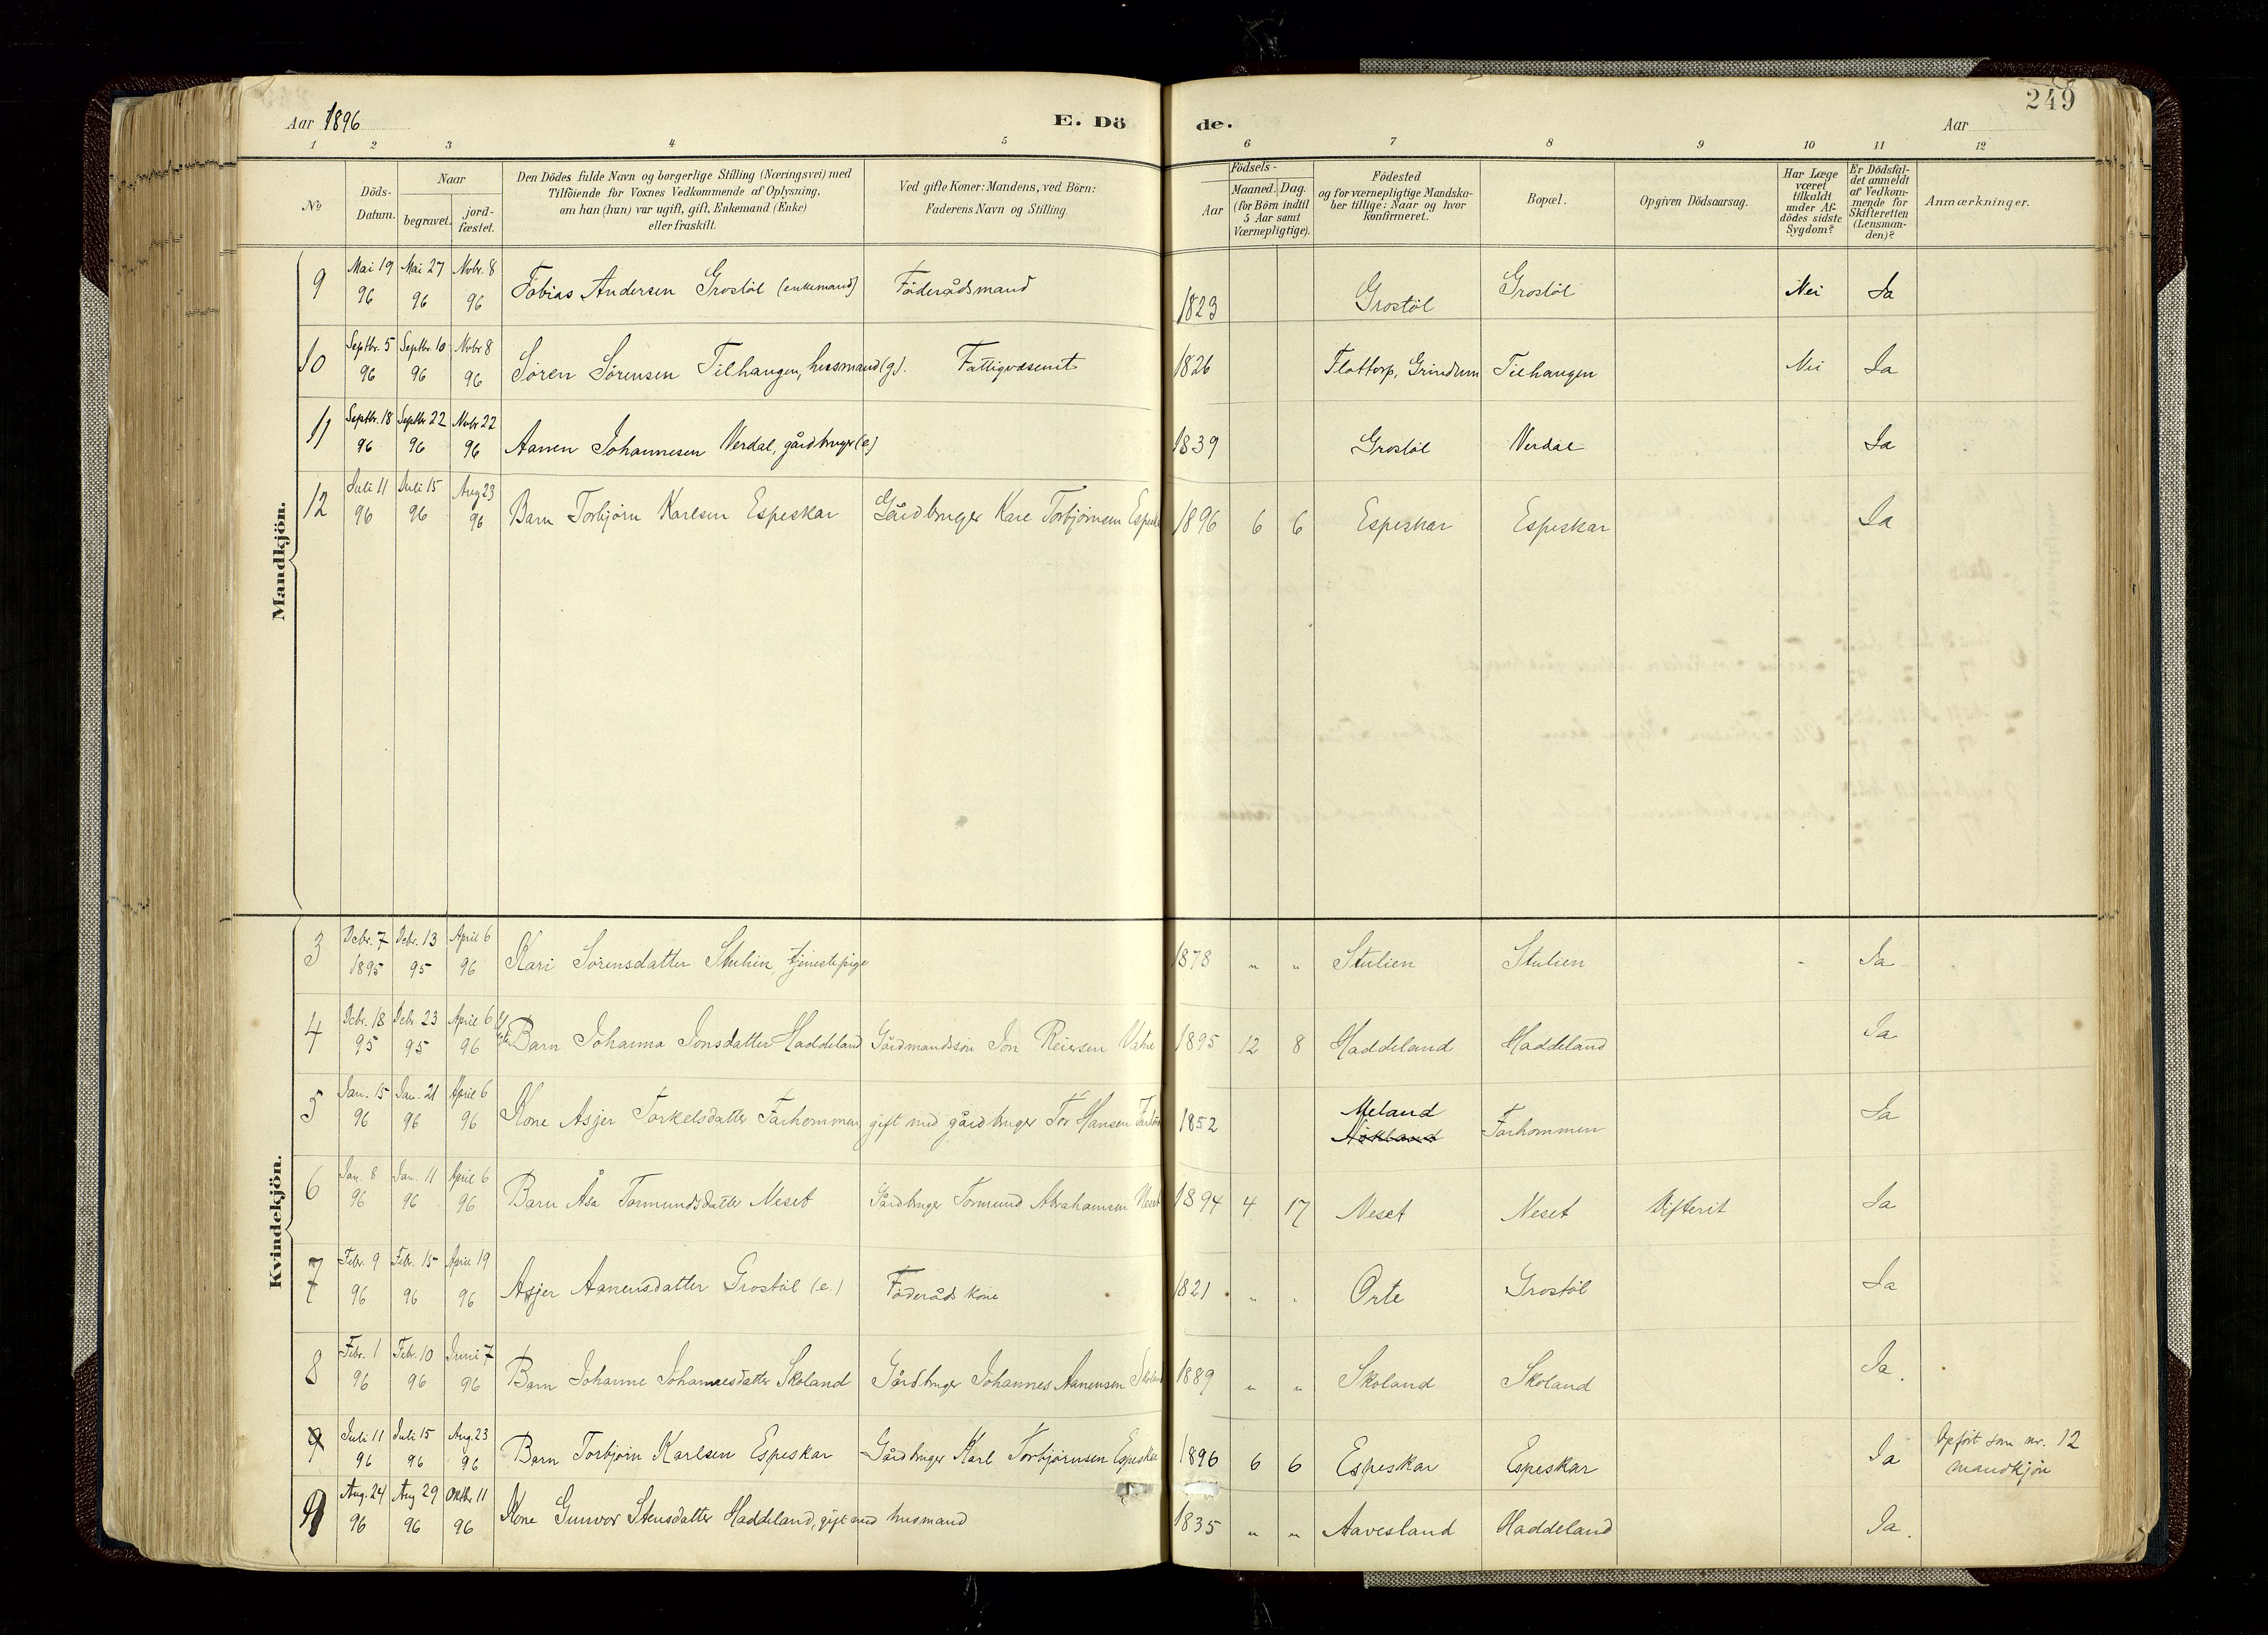 Aar 1896 E. Dö de. Aar 249
1 2 3 4 5 6 7 8 9 10 11 12
No
Döds-Datum.
Naar
begravet.
jord-fæstet.
Den Dödes fulde Navn og borgerlige Stilling (Næringsvei) med
Tilföiende for Voxnes Vedkommende af Oplysning,
om han (hun) var ugift, gift, Enkemand (Enke)
eller fraskilt.
Ved gifte Koner: Mandens, ved Börn:
Faderens Navn og Stilling.
Födsels-
Aar
Maaned. Dag.
(for Börn indtil
5 Aar samt
Værnepligtige).
Födested
og for værnepligtige Mandska-
ber tillige: Naar og hvor
Konfirmeret.
Bopæl.
Opgiven Dödsaarsag.
Har Læge
været
tilkaldt
under Af-
dödes sidste
Sygdom?
Er Dödsfal-
det anmeldt
af Vedkom-
mende for
Skifteretten
(Lensman-
den)?
Anmærkninger.
Mandkjön.
9 Mai 19 96 Mai 27 96 Novbr. 8 96 Tobias Andersen Grostøl (enkemand) Föderådsmand 1823 Grostøl Grostøl Nei Ja
10 Septbr. 5 96 Septbr. 10 96 Novbr 8 96 Sören Sörensen Tilhaugen, husmand (g). Fattigvæsenet 1826 Flottorp, Grindum Tilhaugen Nei Ja
11 Septbr. 18 96 Septbr 22 96 Novbr 22 96 Aanen Johannesen Verdal, gårdbruger (e) 1839 Grostøl Verdal Ja
12 Juli 11 96 Juli 15 96 Aug 23 96 Barn Torbjörn Karlsen Espeskar Gårdbruger Karl Torbjörnsen Espeskar 1896 6 6 Espeskar Espeskar Ja
Kvindekjön.
3 Decbr. 7 1895 Decbr. 13 95 April 6 96 Kari Sörensdatter Stulien, tjenestepige 1878 " " Stulien Stulien Ja
4 Debr. 18 95 Debr 23 95 April 6 96 Barn Johanna Jonsdatter Haddeland Gårdmandssön Jon Reiersen Vatne 1895 12 8 Haddeland Haddeland Ja
5 Jan. 15 96 Jan. 21 96 April 6 96 Kone Asjer Torkelsdatter Farhommen gift med gårdbruger Tor Hansen 1852 Meland Farhommen Ja
6 Jan. 8 96 Jan. 11 96 April 6 96 Barn Åsa Tormundsdatter Neset Gårdbruger Tormund Abrahamsen Neset 1894 4 17 Neset Neset Difterit Ja
7 Febr. 9 96 Febr. 15 96 April 19 96 Asjer Aanensdatter Grostøl (e.) Föderåds kone 1821 " " Orte Grostøl Ja
8 Febr. 1 96 Febr. 10 96 Juni 7 96 Barn Johanne Johannesdatter Skoland Gårdbruger Johannes Aanensen Skoland 1889 " " Skoland Skoland Ja.
9 Juli 11 96 Juli 15 96 Aug. 23 96 Barn Torbjörn Karlsen Espeskar Gårdbruger Karl Torbjörnsen Espeskar 1896 6 6 Espeskar Espeskar Ja Opfört som nr. 12 mandkjön
9 Aug. 24 96 Aug 29 96 Oktbr 11 96 Kone Gunvor Stensdatter Haddeland, gift med husmand 1835 " " Aavesland Haddeland Ja.